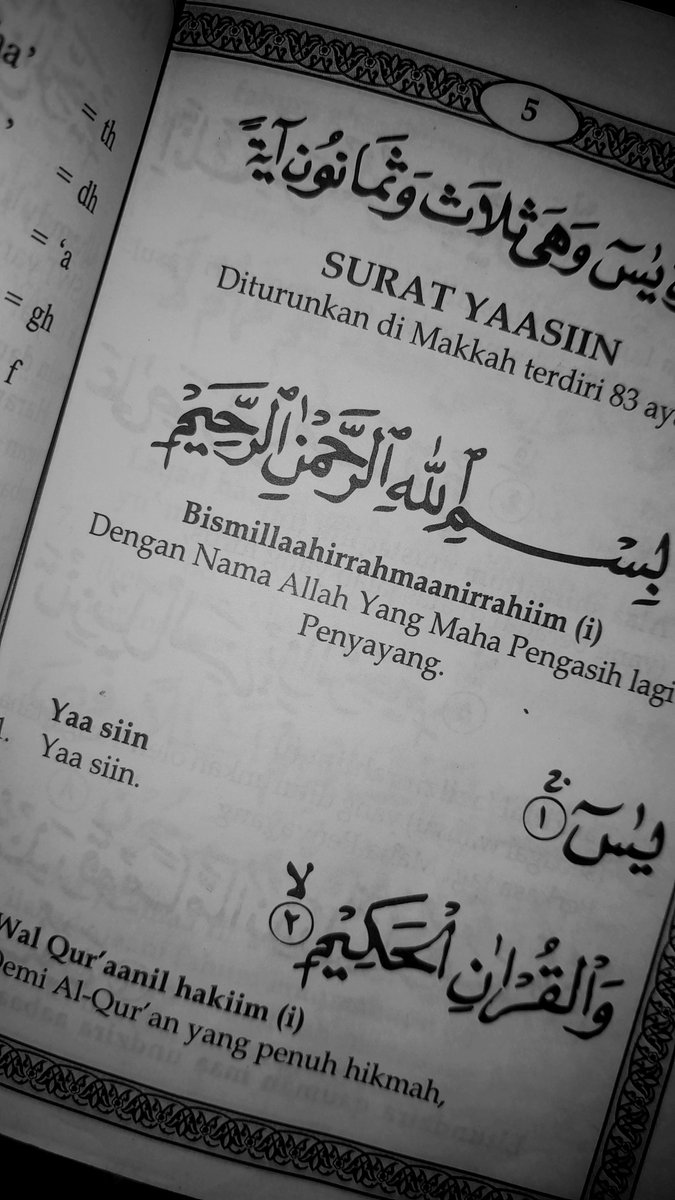 = th
= dh
= 'a
= gh
f
5
يٰسٓ وَهِيَ ثَلَاثٌ وَثَمَانُوْنَ آيَةً
SURAT YAASIIN
Diturunkan di Makkah terdiri 83
بِسْمِ اللّٰهِ الرَّحْمٰنِ الرَّحِيْمِ
Bismillaahirrahmaanirrahiim (i)
Dengan Nama Allah Yang Maha Pengasih lagi
Penyayang.
يٰسٓ ۚ ١
Yaa siin
1. Yaa siin.
وَالْقُرْاٰنِ الْحَكِيْمِ ۙ ٢
Wal Qur'aanil hakiim (i)
Demi Al-Qur'an yang penuh hikmah,